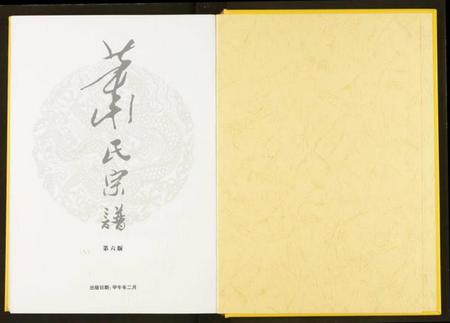 萧氏宗譜
第六版
出版日期：甲午年二月